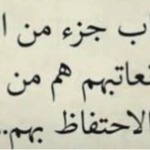 جزء من ا
نعاتبهم هم من
الاحتفاظ بهم..